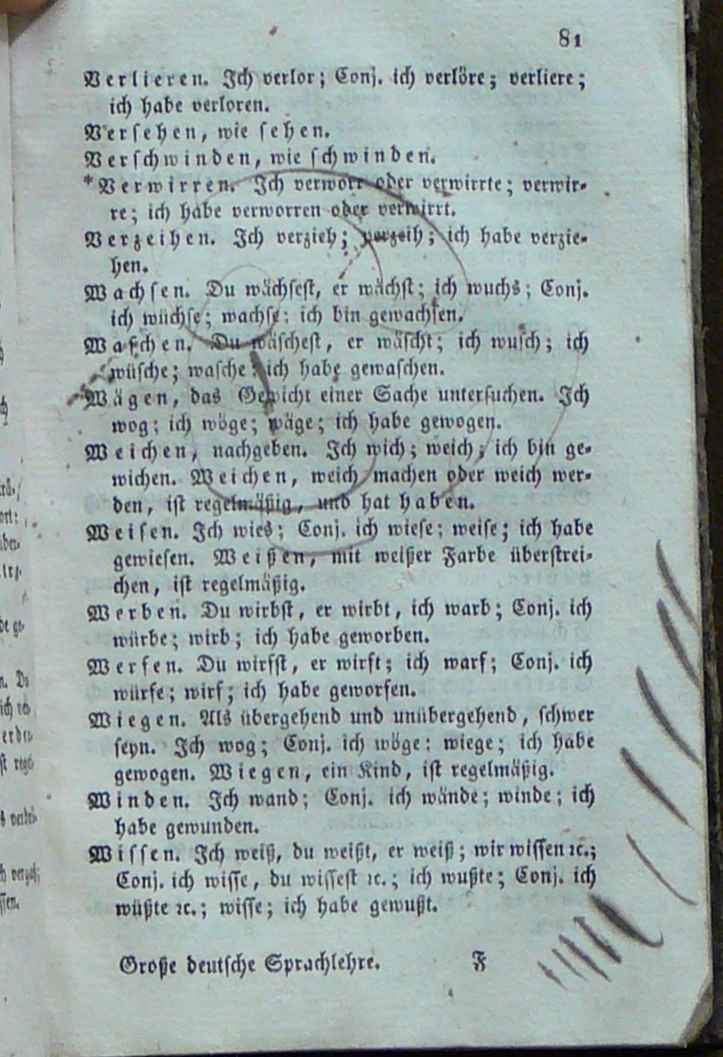 81
Verlieren. Ich verlor; Conj. ich verlöre; verliere;
ich habe verloren.
Verſehen, wie ſehen.
Verſchwinden, wie ſchwinden.
*Verwirren. Ich verworr oder verwirrte; verwir-
re; ich habe verworren oder verwirrt.
Verzeihen. Ich verzieh; verzeih; ich habe verzie-
hen.
Wachſen. Du wächſeſt, er wächſt; ich wuchs; Conj.
ich wüchſe; wachſe; ich bin gewachſen.
Waſchen. Du wäſcheſt, er wäſcht; ich wuſch; ich
wüſche; waſche; ich habe gewaſchen.
Wägen, das Gewicht einer Sache unterſuchen. Ich
wog; ich wöge; wäge; ich habe gewogen.
Weichen, nachgeben. Ich wich; weich; ich bin ge-
wichen. Weichen, weich machen oder weich wer-
den, iſt regelmäßig, und hat haben.
Weiſen. Ich wies; Conj. ich wieſe; weiſe; ich habe
gewieſen. Weißen, mit weißer Farbe überſtrei-
chen, iſt regelmäßig.
Werben. Du wirbſt, er wirbt, ich warb; Conj. ich
würbe; wirb; ich habe geworben.
Werfen. Du wirfſt, er wirft; ich warf; Conj. ich
würfe; wirf; ich habe geworfen.
Wiegen. Als übergehend und unübergehend, ſchwer
ſeyn. Ich wog; Conj. ich wöge; wiege; ich habe
gewogen. Wiegen, ein Kind, iſt regelmäßig.
Winden. Ich wand; Conj. ich wände; winde; ich
habe gewunden.
Wiſſen. Ich weiß, du weißt, er weiß; wir wiſſen ꝛc.;
Conj. ich wiſſe, du wiſſeſt ꝛc.; ich wußte; Conj. ich
wüßte ꝛc.; wiſſe; ich habe gewußt.
Große deutſche Sprachlehre. F